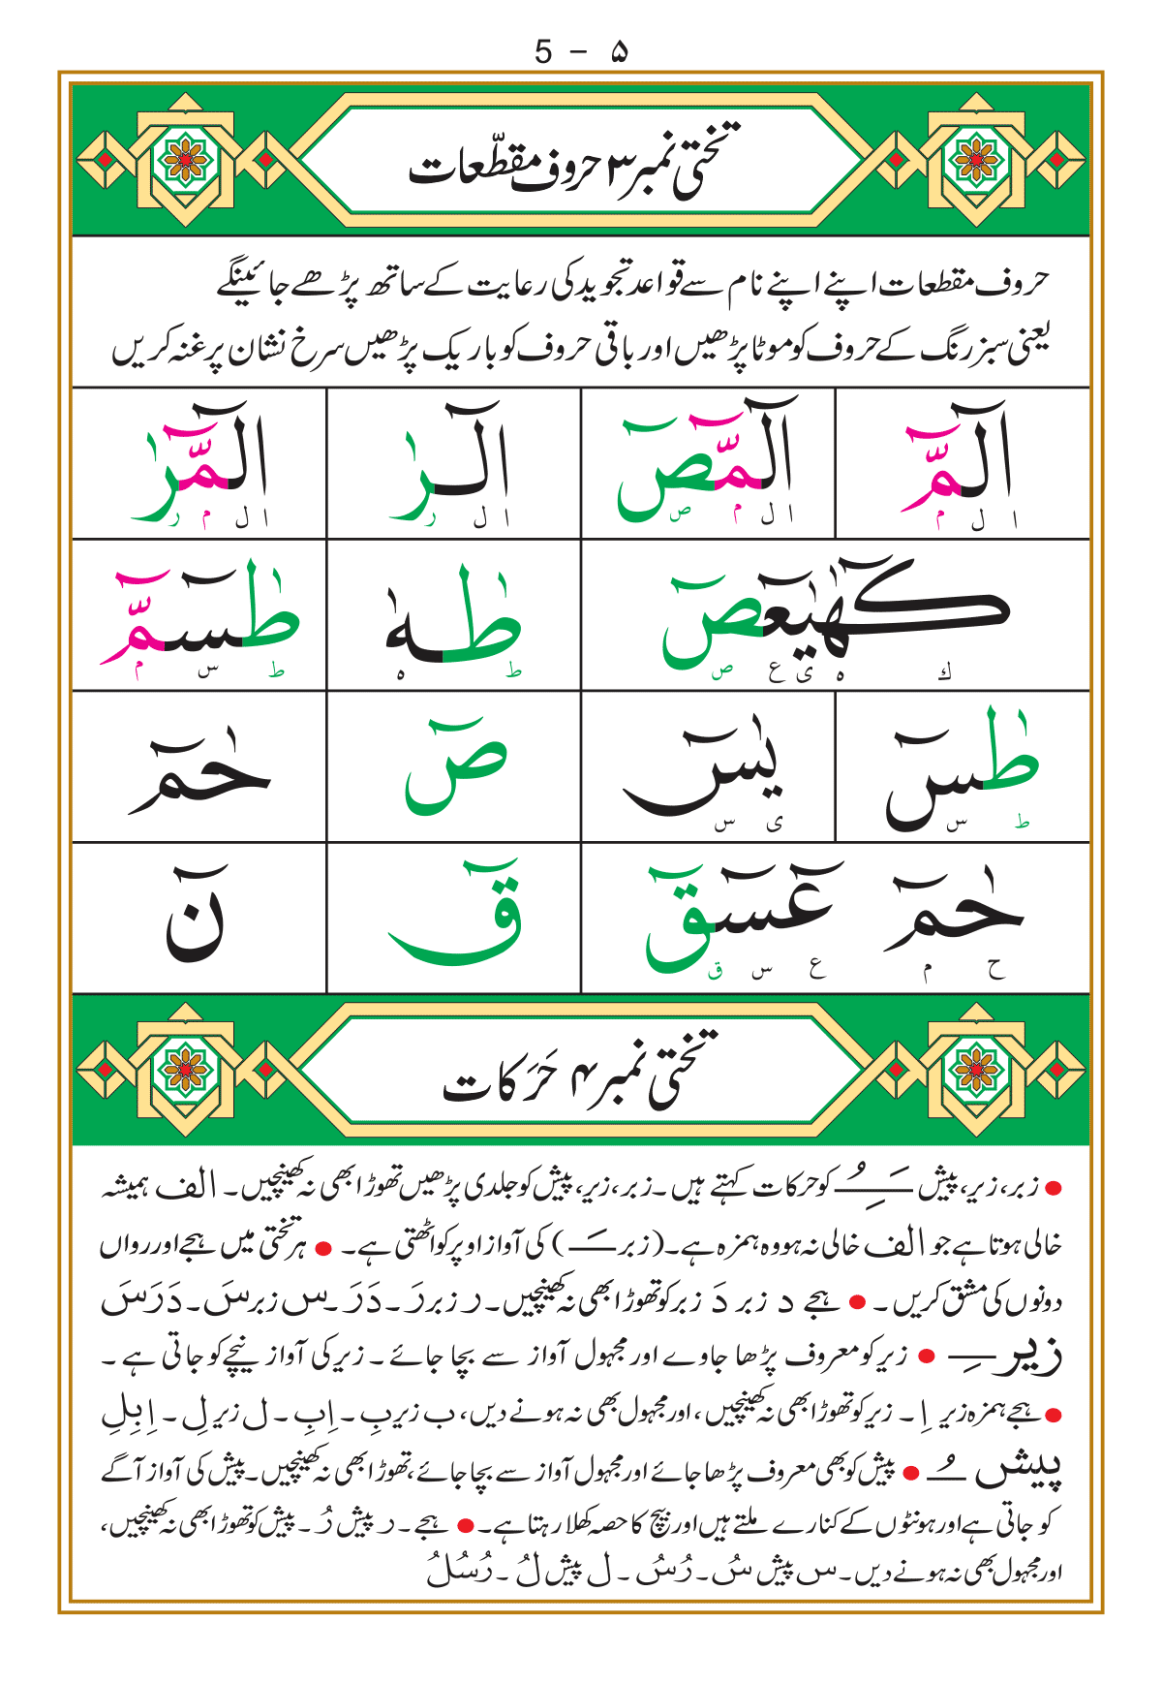 5 - ۵
تختی نمبر ۳ حروف مقطّعات
حروف مقطعات اپنے اپنے نام سے قواعد تجوید کی رعایت کے ساتھ پڑھے جائینگے
یعنی سبز رنگ کے حروف کو موٹا پڑھیں اور باقی حروف کو باریک پڑھیں سرخ نشان پر غنہ کریں
الٓمّٓ الٓمّٓصٓ الٓرٰ الٓمّٓرٰ
ا ل م ا ل م ص ا ل ر ا ل م ر
كٓهٰيٰعٓصٓ طٰهٰ طٰسٓمّٓ
ك ه ی ع ص ط ه ط س م
طٰسٓ يٰسٓ صٓ حٰمٓ
ط س ی س
حٰمٓ عٓسٓقٓ قٓ نٓ
ح م ع س ق
تختی نمبر ۴ حَرَکات
● زبر، زیر، پیش ـَـِـُ کو حرکات کہتے ہیں۔ زبر، زیر، پیش کو جلدی پڑھیں تھوڑا بھی نہ کھینچیں۔ الف ہمیشہ
خالی ہوتا ہے جو الف خالی نہ ہو وہ ہمزہ ہے۔ (زبر ـَـ) کی آواز اوپر کو اٹھتی ہے۔ ● ہر تختی میں ہجے اور رواں
دونوں کی مشق کریں۔ ● ہجے د زبر دَ زبر کو تھوڑا بھی نہ کھینچیں۔ ر زبر رَ۔ دَرَ۔ س زبر سَ۔ دَرَسَ
زیر ـِـ ● زیر کو معروف پڑھا جاوے اور مجہول آواز سے بچا جائے۔ زیر کی آواز نیچے کو جاتی ہے۔
● ہجے ہمزہ زیر اِ۔ زیر کو تھوڑا بھی نہ کھینچیں، اور مجہول بھی نہ ہونے دیں، ب زیر بِ۔ اِبِ۔ ل زیر لِ۔ اِبِلِ
پیش ـُـ ● پیش کو بھی معروف پڑھا جائے اور مجہول آواز سے بچا جائے، تھوڑا بھی نہ کھینچیں۔ پیش کی آواز آگے
کو جاتی ہے اور ہونٹوں کے کنارے ملتے ہیں اور بیچ کا حصہ کھلا رہتا ہے۔ ● ہجے۔ ر پیش رُ۔ پیش کو تھوڑا بھی نہ کھینچیں،
اور مجہول بھی نہ ہونے دیں۔ س پیش سُ۔ رُسُ۔ ل پیش لُ۔ رُسُلُ